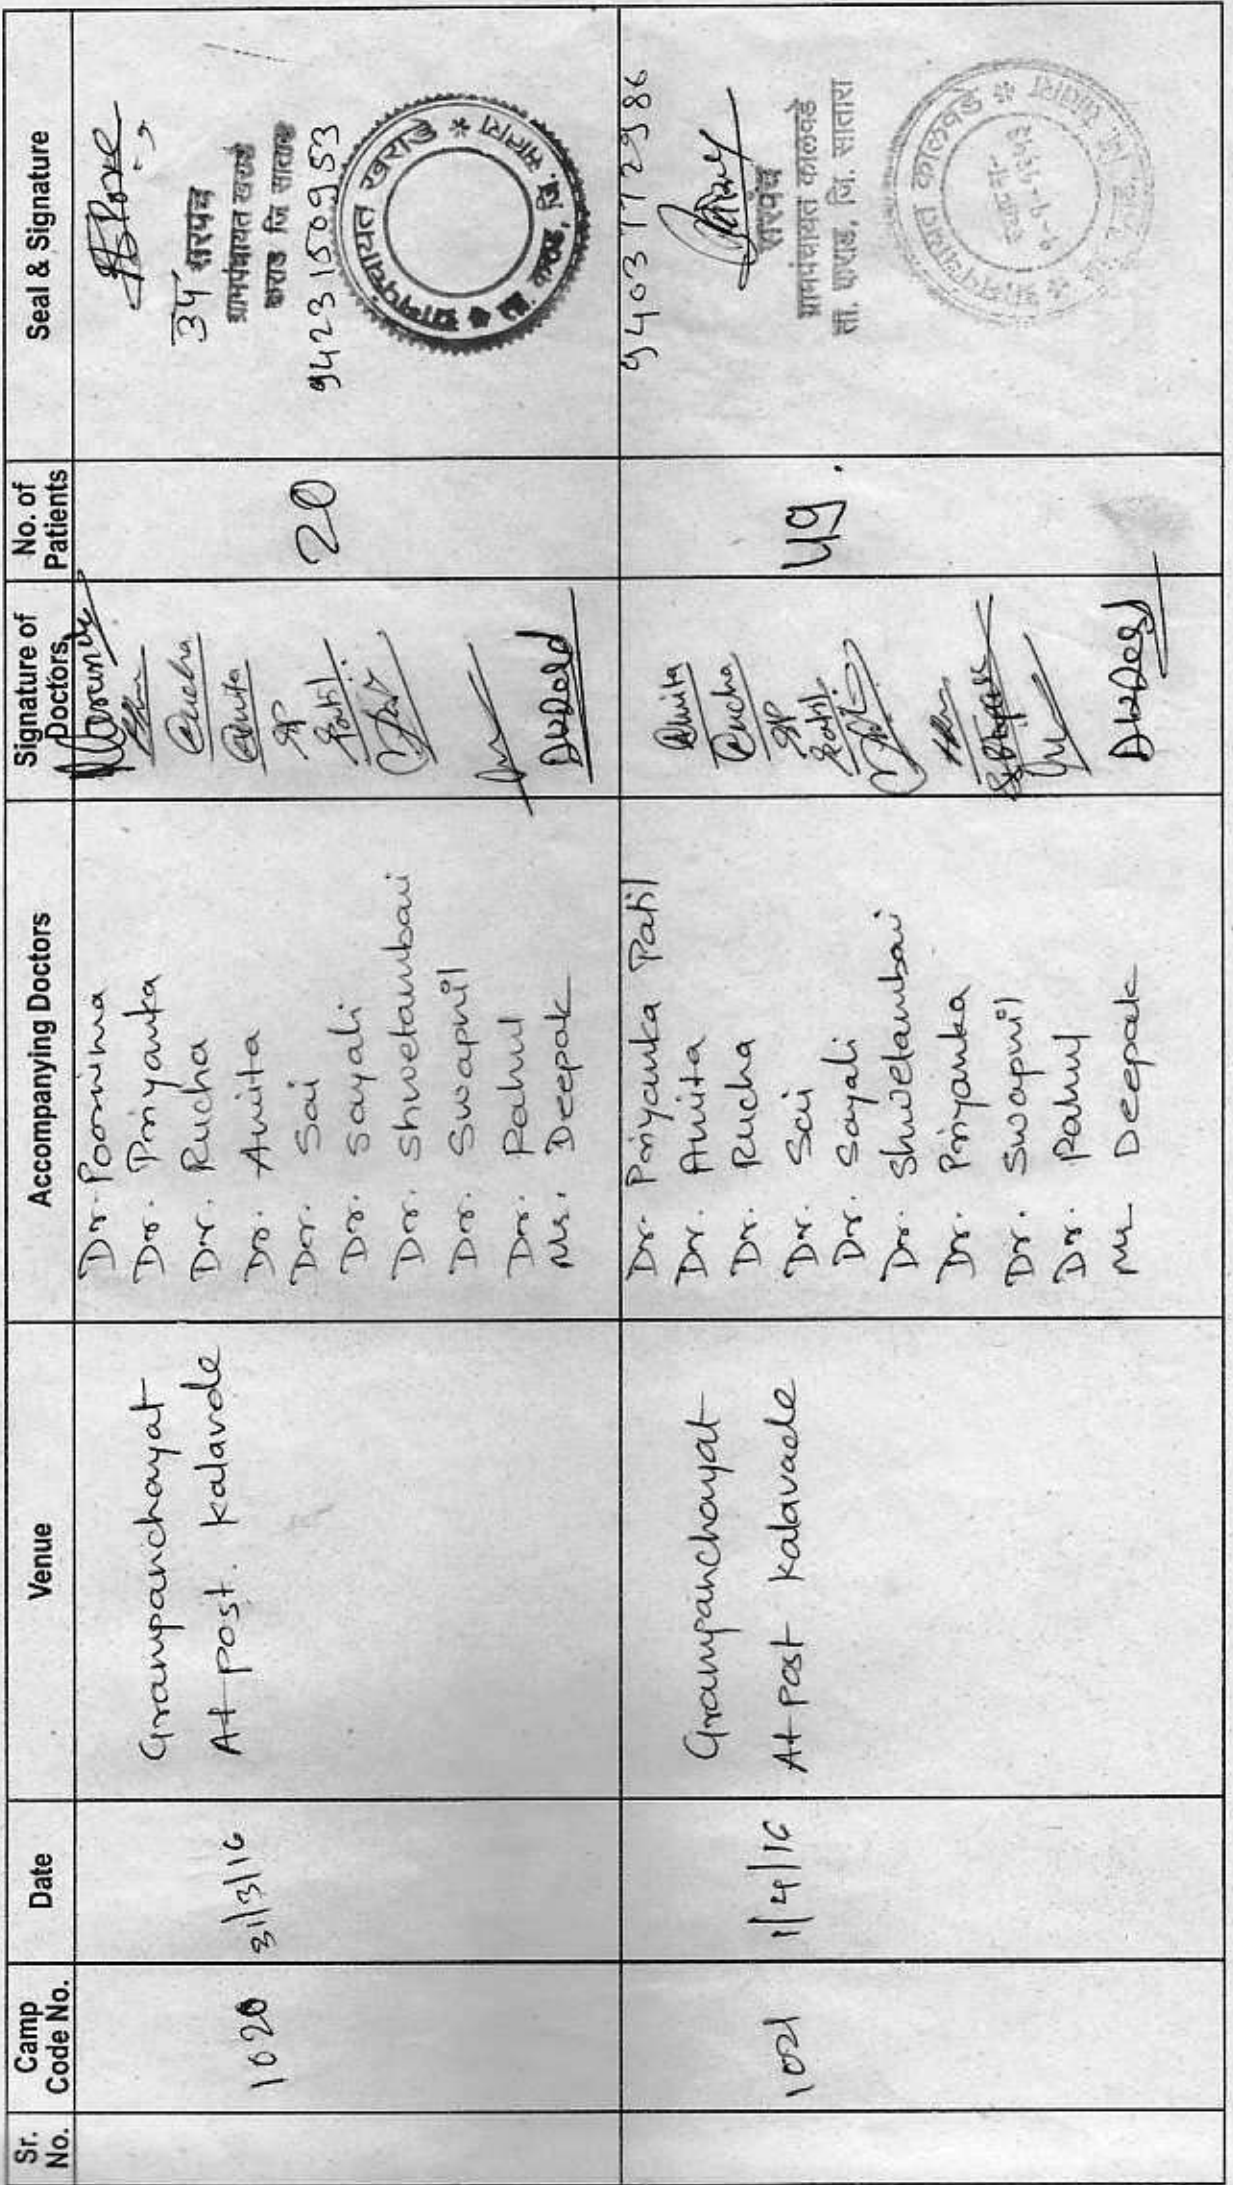 Sr. No.
Camp Code No.
Date
Venue
Accompanying Doctors
Signature of Doctors
No. of Patients
Seal & Signature
1020
31/3/16
Grampanchayat
At post. Kalavde
Dr. Poornima
Dr. Priyanka
Dr. Rucha
Dr. Amita
Dr. Sai
Dr. Sayali
Dr. Shwetambari
Dr. Swapnil
Dr. Rahul
Mr. Deepak
Rucha
Amita
SP
Patil
20
सरपंच
ग्रामपंचायत खराडे
कराड जि सातारा
9423150953
ग्रामपंचायत खराडे * ता. कराड, जि. सातारा
1021
1/4/16
Grampanchayat
At post Kalavade
Dr. Priyanka Patil
Dr. Amita
Dr. Rucha
Dr. Sai
Dr. Sayali
Dr. Shwetambari
Dr. Priyanka
Dr. Swapnil
Dr. Rahul
Mr Deepak
Amita
Rucha
SP
Patil
49.
9403772986
सरपंच
ग्रामपंचायत कालवडे
ता. कराड, जि. सातारा
ग्रामपंचायत कालवडे *
स्थापना